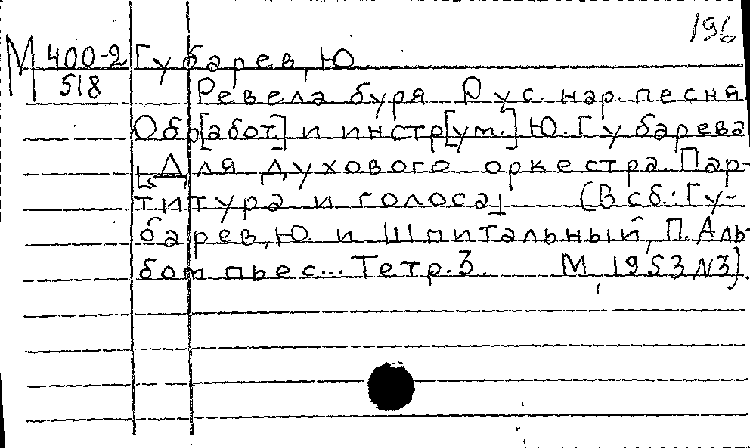 196
М 400-2 Губарев, Ю.
518 Ревела буря. Рус. нар. песня.
Обр[абот.] и инстр[ум.] Ю. Губарева
[Для духового оркестра. Пар-
титура и голоса] (В сб.: Гу-
барев, Ю. и Шпитальный, П. Аль-
бом пьес... Тетр. 3. М., 1953 №3).